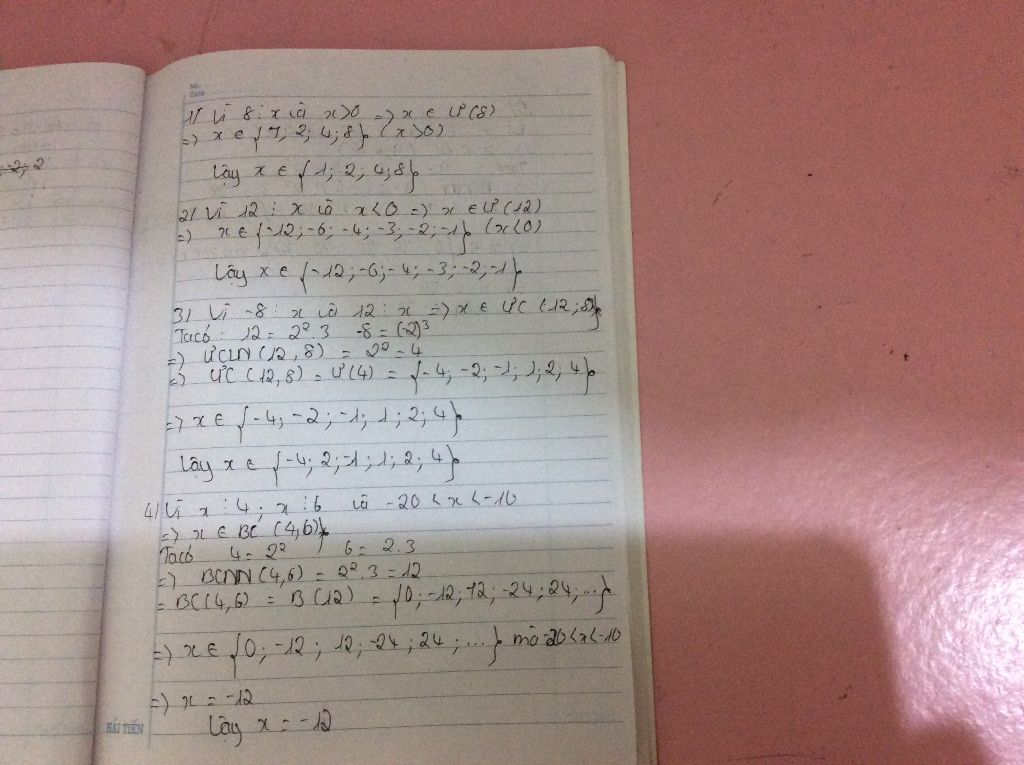 -2; 2
No:
Date
1/ Vì 8 ⋮ x và x>0 => x ∈ Ư(8)
=> x ∈ {1; 2; 4; 8} (x>0)
Vậy x ∈ {1; 2, 4; 8}
2/ Vì 12 ⋮ x và x<0 => x ∈ Ư(12)
=> x ∈ {-12; -6; -4; -3; -2; -1} (x<0)
Vậy x ∈ {-12; -6; -4; -3; -2; -1}
3/ Vì -8 ⋮ x và 12 ⋮ x => x ∈ ƯC (12; 8)
Ta có : 12 = 2². 3 -8 = (-2)³
=> ƯCLN(12, 8) = 2² = 4
=> ƯC (12, 8) = Ư(4) = {-4; -2; -1; 1; 2; 4}
=> x ∈ {-4; -2; -1; 1; 2; 4}
Vậy x ∈ {-4; 2; -1; 1; 2; 4}
4/ Vì x ⋮ 4 ; x ⋮ 6 và -20 < x < -10
=> x ∈ BC (4, 6)
Ta có 4 = 2² ; 6 = 2. 3
=> BCNN (4, 6) = 2². 3 = 12
= BC(4, 6) = B(12) = {0; -12; 12; -24; 24; ...}
=> x ∈ {0; -12; 12; -24; 24; ...} mà -20<x<-10
=> x = -12
Vậy x = -12
HẢI TIẾN